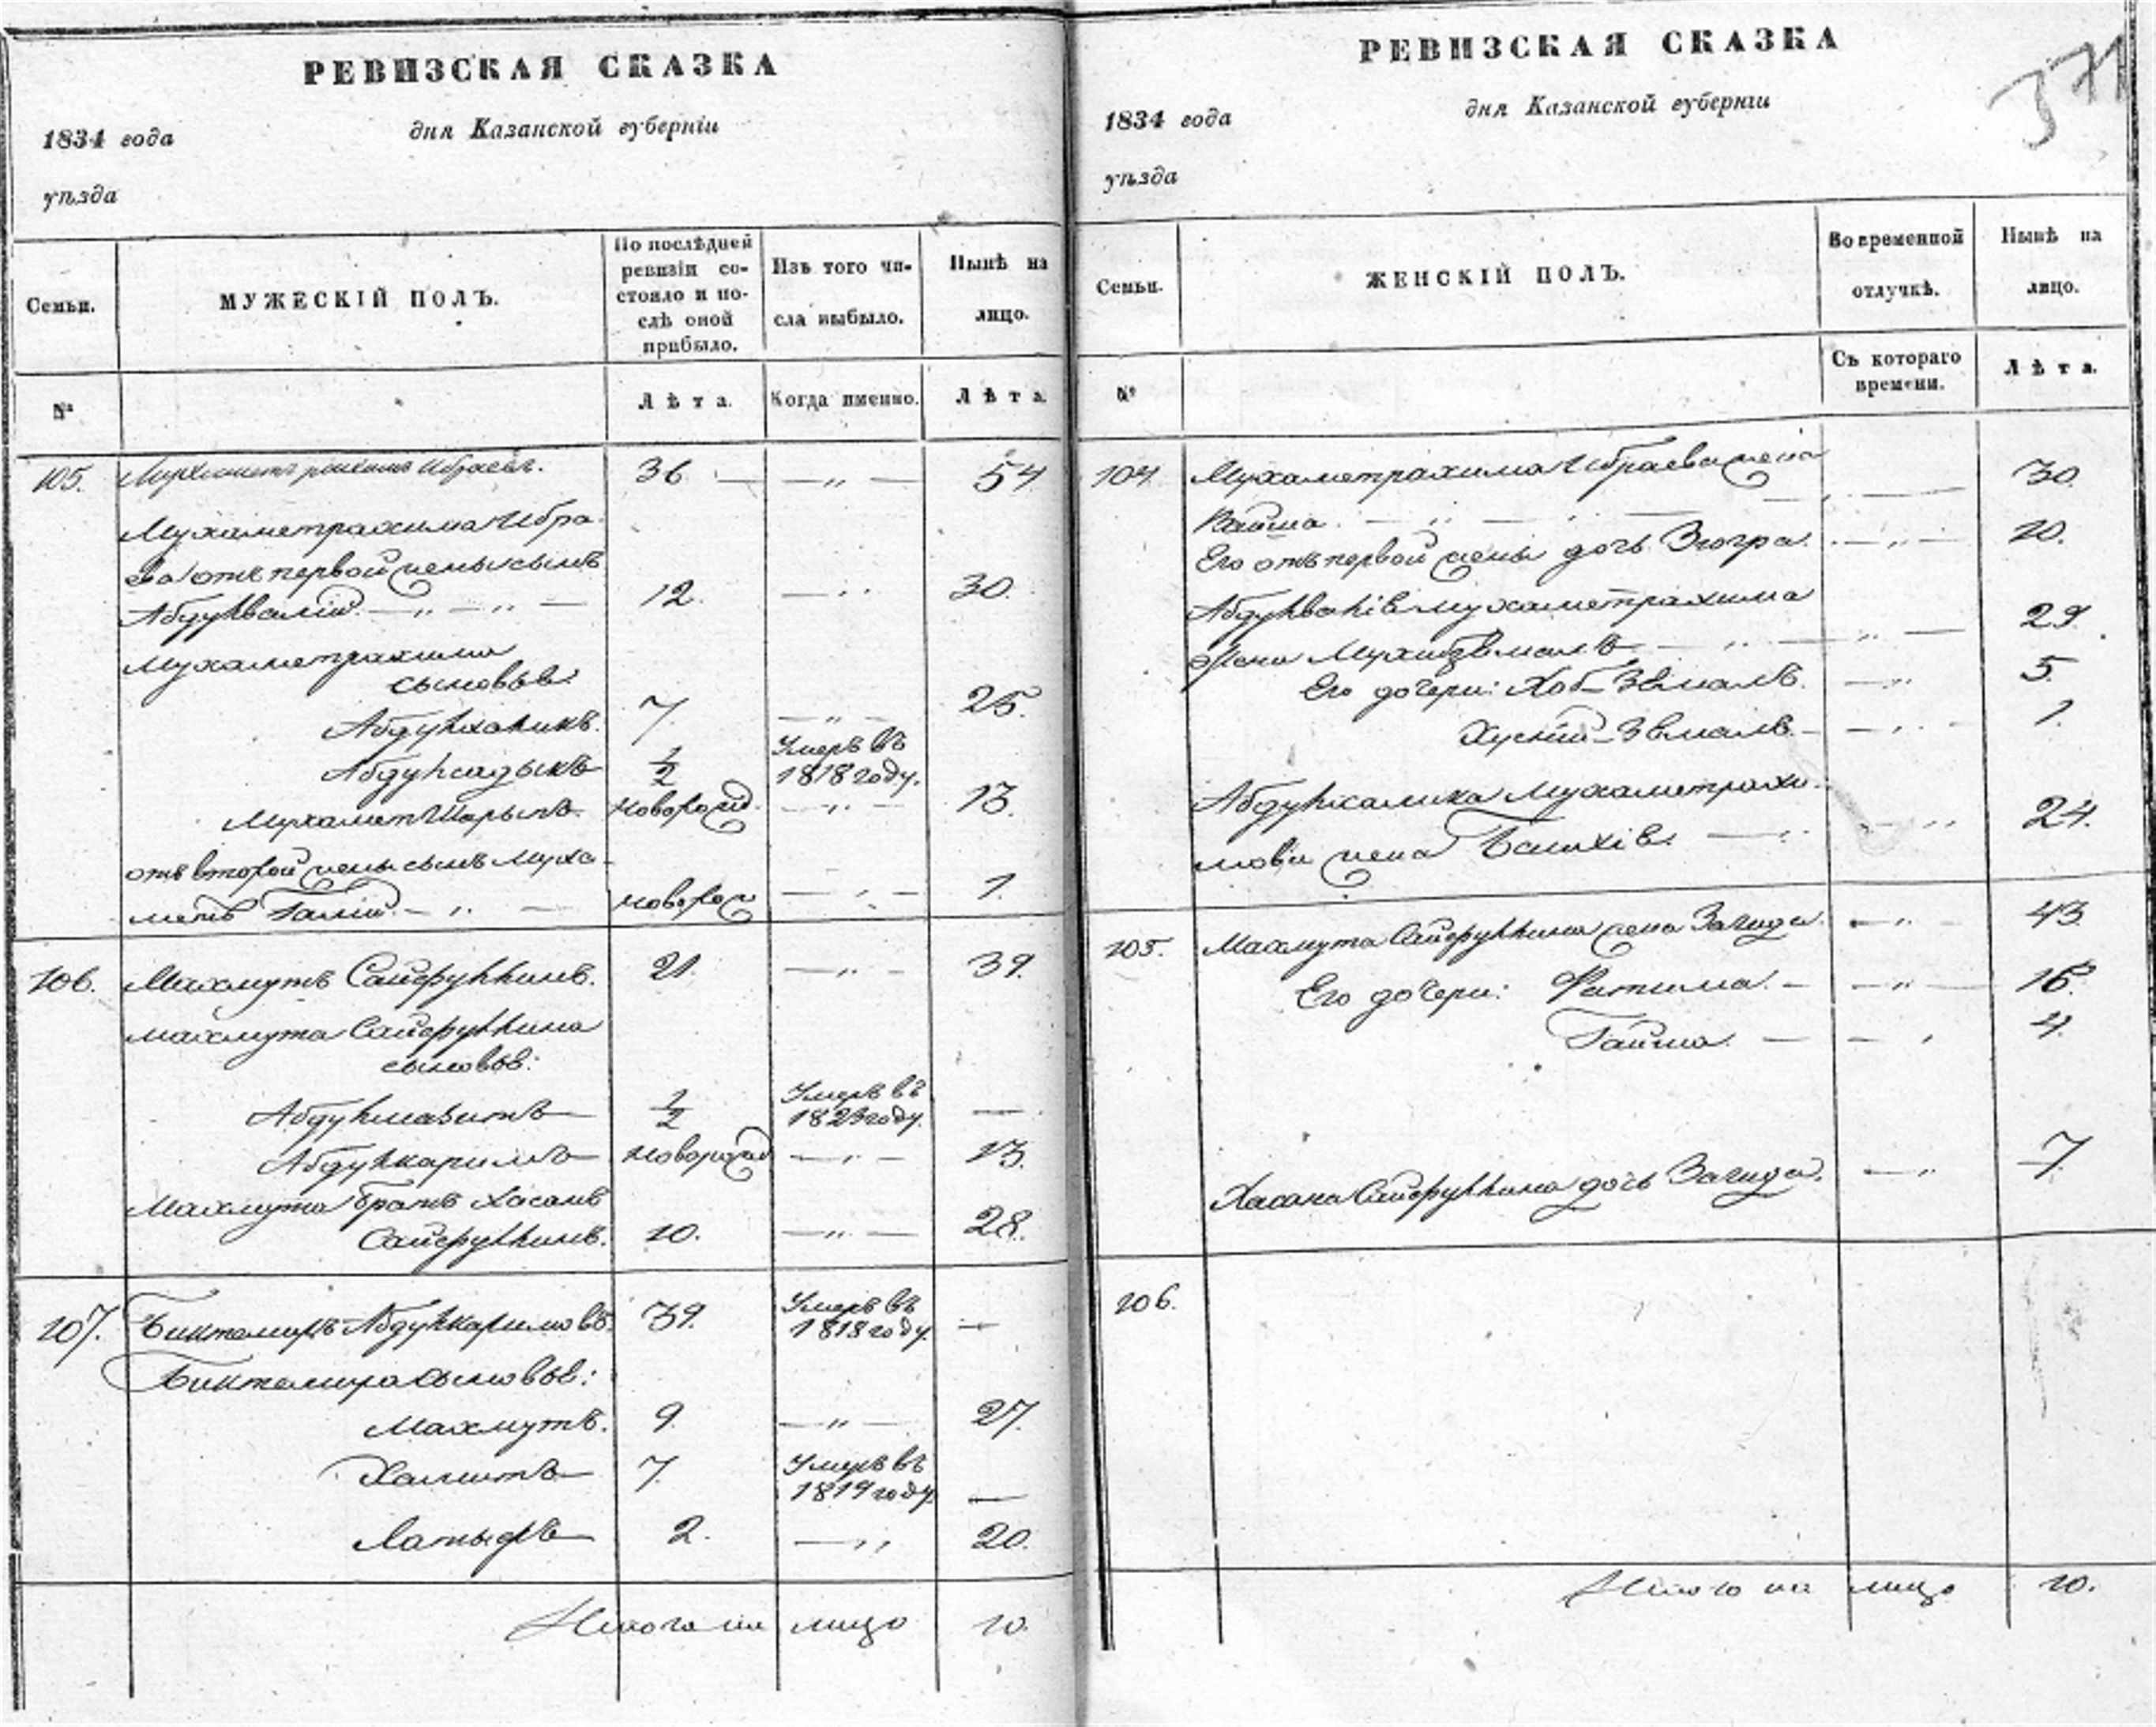 РЕВИЗСКАЯ СКАЗКА
1834 года дня Казанской губерніи
уѣзда
Семьи. МУЖЕСКІЙ ПОЛЪ. По послѣдней ревизіи состояло и послѣ оной прибыло. Изъ того числа выбыло. Нынѣ на лицо.
№ Лѣта. Когда именно. Лѣта.
105. Мухаметрахимъ Ибраевъ. 36 — „ — 54
Мухаметрахима Ибра-
ева отъ первой жены сынъ
Абдулвалій — „ — „ — 12. — „ 30.
Мухаметрахима
сыновья:
Абдулхаликъ. 7. — „ — 25.
Абдулсадыкъ 1/2 Умеръ въ 1818 году.
МухаметШарыпъ. новорожд. — „ — 13.
отъ второй жены сынъ Муха-
метъ Галій. — „ — новорож — „ — 1.
106. Махмутъ Сайфуллинъ. 21. — „ — 39.
Махмута Сайфуллина
сыновья:
Абдул 1/2 Умеръ въ 1823 году. —
Абдулкаримъ новорожд — „ — 13.
Махмута братъ Хасанъ
Сайфуллинъ. 10. — „ — 28.
107. Биктемиръ Абдулкаримовъ. 39. Умеръ въ 1818 году. —
Биктемира сыновья:
Махмутъ. 9. — „ — 27.
Хамитъ 7. Умеръ въ 1819 году —
Латыфъ 2. — „ 20.
Итого на лицо 10.
РЕВИЗСКАЯ СКАЗКА
371
1834 года дня Казанской губерніи
уѣзда
Семьи. ЖЕНСКІЙ ПОЛЪ. Во временной отлучкѣ. Нынѣ на лицо.
№ Съ котораго времени. Лѣта.
104. Мухаметрахима Ибраева жена
— „ — 30.
Его отъ первой жены дочь Зюгра. — „ — 20.
Мухаметрахима
жена — „ — 29.
Его дочери: — „ 5.
— „ — 1.
Абдулхалика Мухаметрахи-
мова жена — „ 24.
105. Махмута Сайфуллина жена Загида. — „ — 43.
Его дочери: Фатима. — „ — 16.
Гайша. — — „ 4.
Хасана Сайфуллина дочь Загида. — „ 7.
106.
Итого на лицо 10.